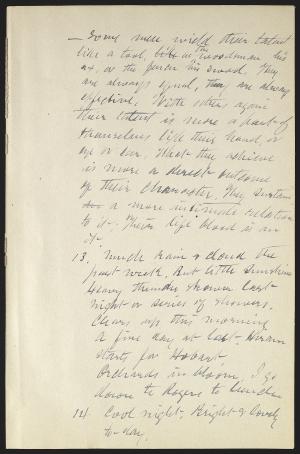 — Some men wield their talent
like a tool, like the woodsman his
ax, or the fencer his sword. They
are always equal, they are always
effective. With others again
their talent is more a part of
themselves like their hand, or
eye or ear. What they achieve
is more a direct outcome
of their character. They sustain
a more intimate relation
to it. Their life blood is in
it.
13. Much rain & cloud the
past week. But little sunshine
Heavy thunder shower last
night or series of showers.
Clears up this morning
a fine day at last. Hiram
starts for Hobart
Orchards in bloom, I go
down to Rogers to lunch
14 Cool night. Bright & lovely
to-day.